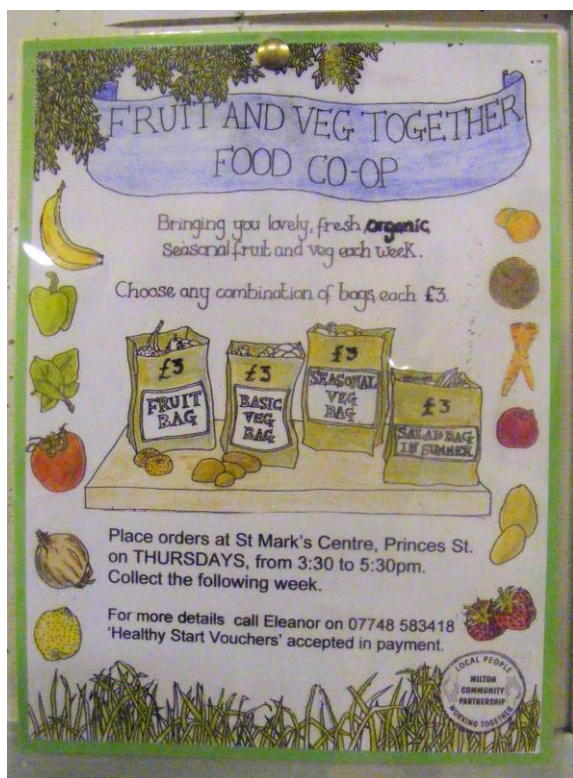 FRUIT AND VEG TOGETHER
FOOD CO-OP
Bringing you lovely, fresh, organic,
seasonal fruit and veg each week.
Choose any combination of bags, each £3.
£3
FRUIT
BAG
£3
BASIC
VEG
BAG
£3
SEASONAL
VEG
BAG
£3
SALAD BAG
IN SUMMER
Place orders at St Mark's Centre, Princes St.
on THURSDAYS, from 3:30 to 5:30pm.
Collect the following week.
For more details call Eleanor on 07748 583418
'Healthy Start Vouchers' accepted in payment.
LOCAL PEOPLE
MILTON
COMMUNITY
PARTNERSHIP
WORKING TOGETHER